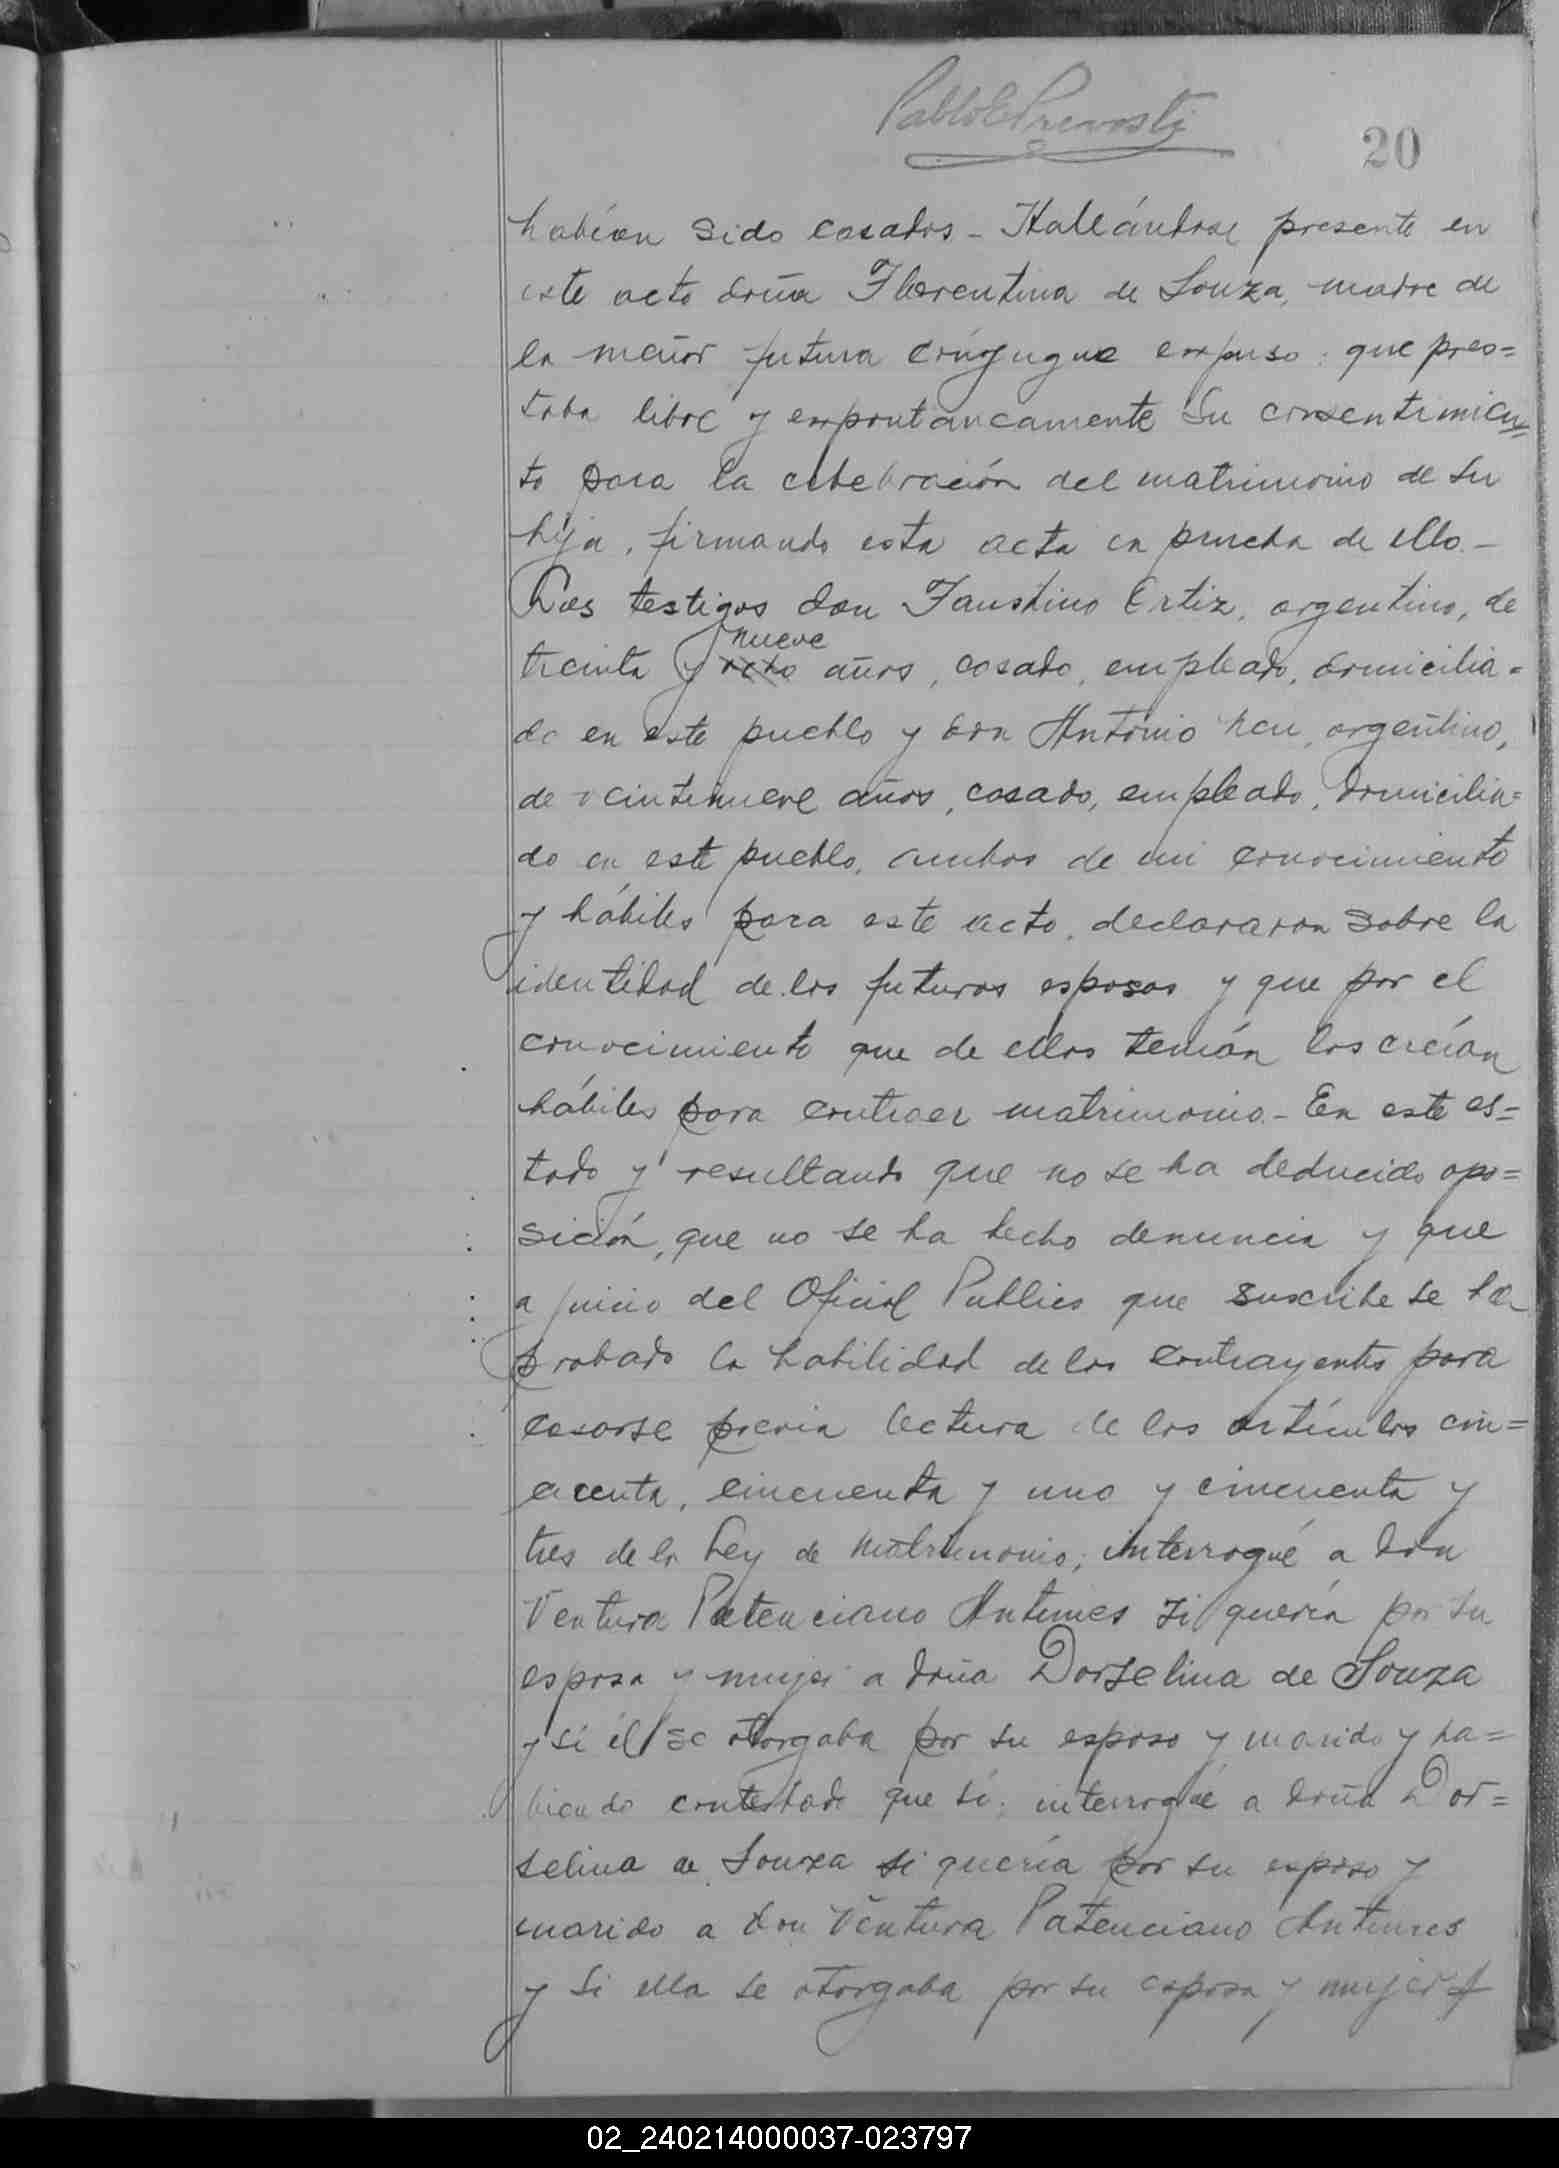 Pablo E Prevosti
20
habían sido casados - Hallándose presente en
este acto doña Florentina de Souza, madre de
la menor futura cónyugue expuso: que pres=
taba libre y expontaneamente su consentimien=
to para la celebración del matrimonio de su
hija, firmando esta acta en prueba de ello.-
Los testigos don Faustino Ortiz, argentino, de
nueve
treinta y ocho años, casado, empleado, domicilia=
do en este pueblo y don Antonio argentino,
de veintinueve años, casado, empleado, domicilia=
do en este pueblo, ambos de mi conocimiento
y hábiles para este acto, declararon sobre la
identidad de los futuros esposos y que por el
conocimiento que de ellos tenían los creían
hábiles para contraer matrimonio.- En este es=
tado y resultando que no se ha deducido opo=
sición, que no se ha hecho denuncia y que
a juicio del Oficial Publico que suscribe se ha
probado la habilidad de los contrayentes para
casarse previa lectura de los artículos cin=
cuenta, cincuenta y uno y cincuenta y
tres de la Ley de Matrimonio; interrogué a don
Ventura Patenciano Antunes si quería por su
esposa y mujer a doña Dorselina de Souza
y si él se otorgaba por su esposo y marido y ha=
biendo contestado que sí; interrogué a doña Dor=
selina de Souza si quería por su esposo y
marido a don Ventura Patenciano Antunes
y si ella se otorgaba por su esposa y mujer
02_240214000037-023797